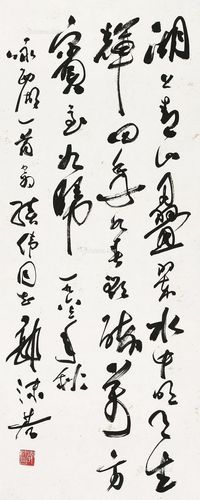 湖上青山叠翠水中明月生
辉四季如春万方
宾至如归 一九六三年秋
咏西湖一首为绩伟同志 郭沫若